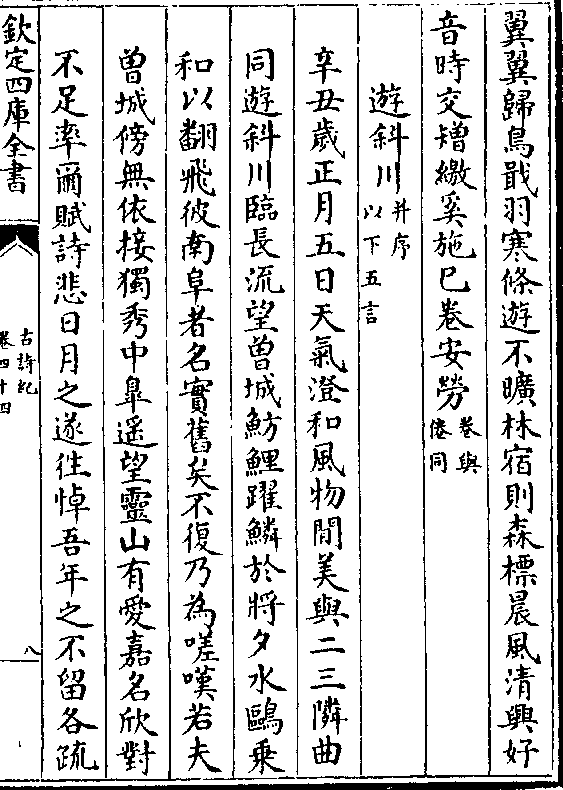 翼翼歸鳥戢羽寒條遊不曠林宿則森標晨風清興好
音時交矰繳奚施巳卷安勞卷與倦同
遊斜川并序以下五言
辛丑歲正月五日天氣澄和風物閒美與二三隣曲
同遊斜川臨長流望曾城魴鯉躍鱗於將夕水鷗乗
和以翻飛彼南阜者名實舊矣不復乃為嗟嘆若夫
曽城傍無依接獨秀中臯遥望靈山有愛嘉名欣對
不足率爾賦詩悲日月之遂徃悼吾年之不留各疏
欽定四庫全書
古詩紀
卷四十四
八